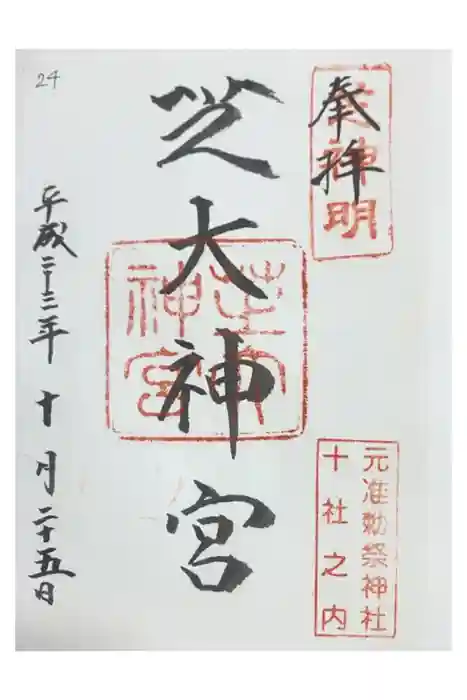 奉拝
芝神明
元准勅祭神社
十社之内
芝大神宮
芝大
神宮
平成二十三年十月二十五日
24